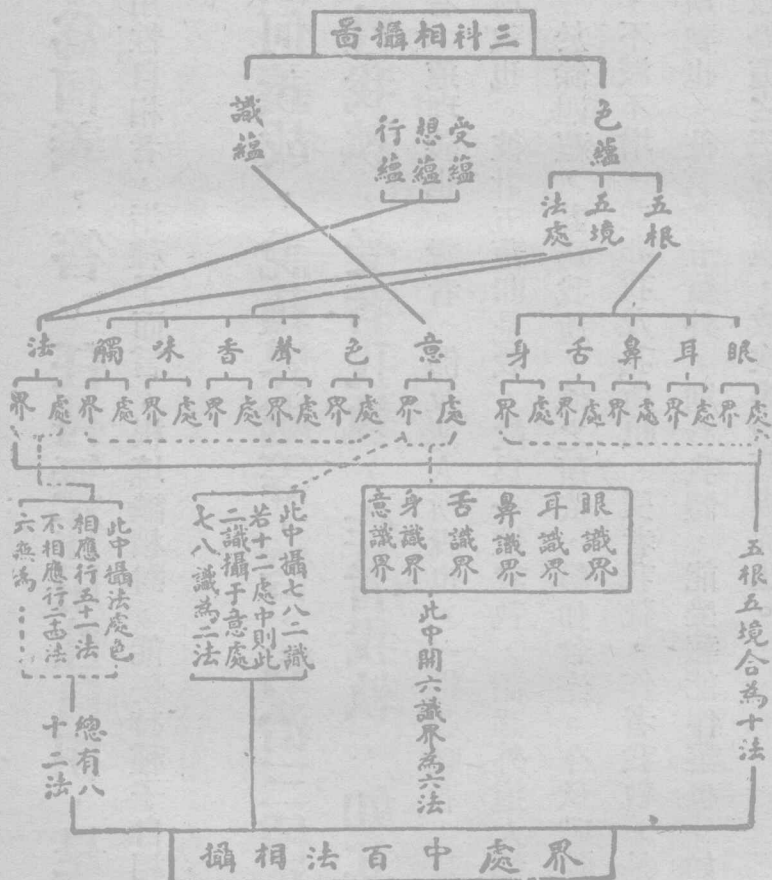 三科相攝圖
色蘊
受蘊
想蘊
行蘊
識蘊
五根
五境
法處
眼
耳
鼻
舌
身
意
色
聲
香
味
觸
法
處
界
處
界
處
界
處
界
處
界
處
界
處
界
處
界
處
界
處
界
處
界
處
界
眼識界
耳識界
鼻識界
舌識界
身識界
意識界
五根五境合為十法
此中開六識界為六法
此中攝七八二識
若十二處中則此
二識攝于意處
七八識為二法
此中攝法處色
相應行五十一法
不相應行二十四法
六無為
總有八
十二法
界處中百法相攝